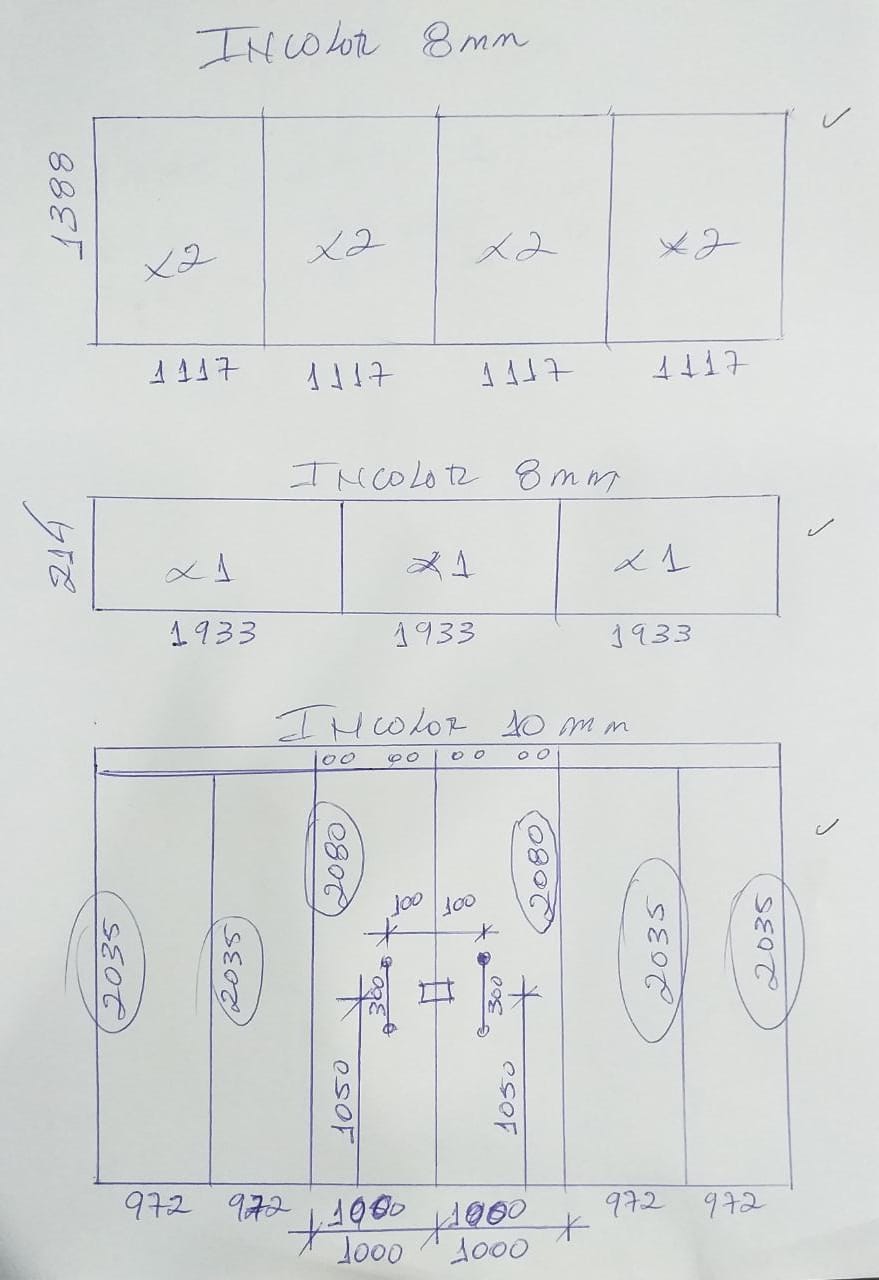 INCOLOR 8mm
1388
x2 x2 x2 x2
1117 1117 1117 1117
INCOLOR 8mm
214
x1 x1 x1
1933 1933 1933
INCOLOR 10mm
2080 2080
100 100
2035 2035 2035 2035
300 300
1050 1050
972 972 1000 1000 972 972
1000 1000